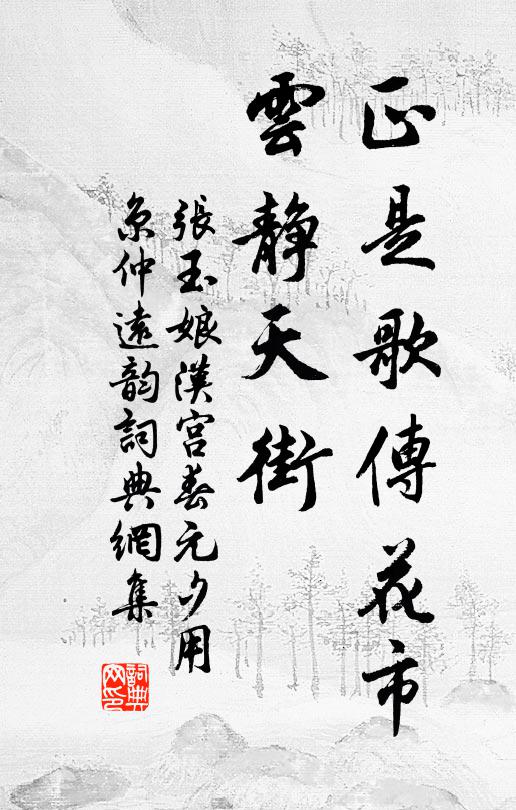 正是歌傳花市
雲靜天街
張玉娘漢宮春元夕用
京仲遠韵詞典網集
詞典
网印